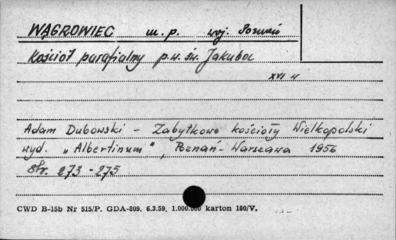 WĄGROWIEC m.p. woj. Poznań
Kościół parafialny p.w. św. Jakuba
XVI w
Adam Dubowski - Zabytkowe kościoły Wielkopolski
wyd. „Albertinum", Poznań-Warszawa 1956
str. 273-275
CWD B-15b Nr 515/P. GDA-809. 6.3.59. 1.000.000 karton 180/V.